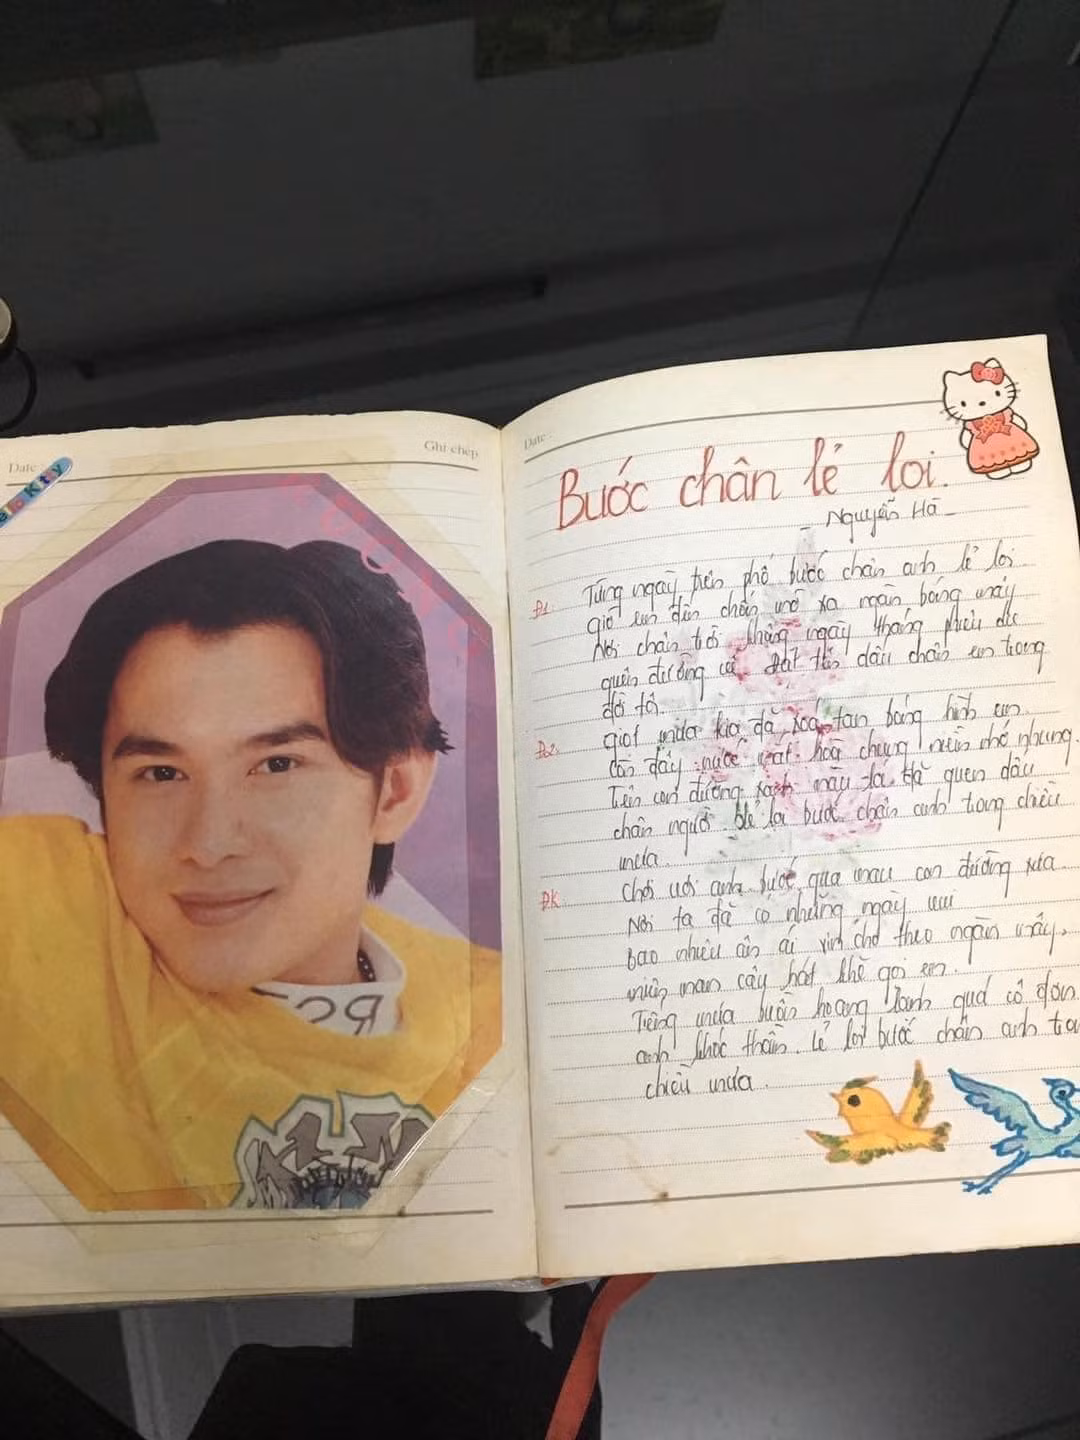 Date
Ghi chép
Hello Kitty
Date
Bước chân lẻ loi.
Nguyễn Hà
Đ1
Từng ngày trên phố bước chân anh lẻ loi
giờ em đến chốn mô xa ngàn bóng mây
Nơi chân trời tháng ngày phiêu
quên đường về dấu chân em trong
đời tôi.
Đ2
giọt mưa kia đã xoá tan bóng hình em.
Còn đây nước mắt hoà chung niềm nhớ nhung.
Trên con đường xanh màu lá đã quen dấu
chân người lẻ loi bước chân anh trong chiều
mưa.
ĐK
Chơi vơi anh bước qua mau con đường xưa
Nơi ta đã có những ngày vui
bao nhiêu ân ái xin cho theo ngàn mây,
miên man cây hát khẽ gọi em.
Tiếng mưa buồn hoang lạnh quá cô đơn
anh khóc thầm. Lẻ loi bước chân anh tro
chiều mưa.